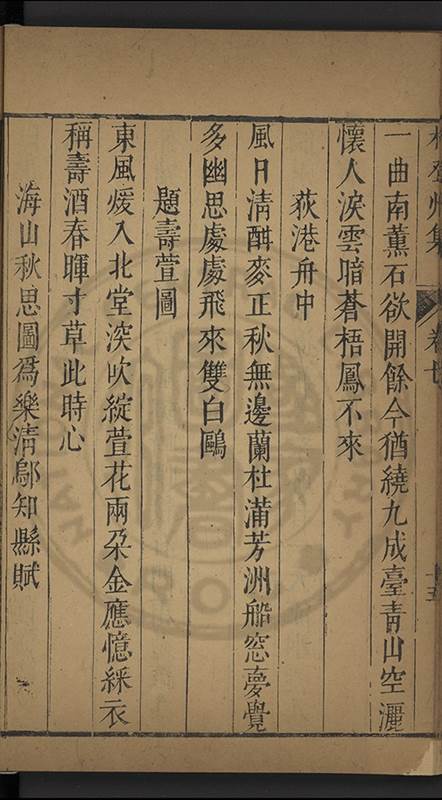 登州集 卷七
一曲南薰石欲開餘今猶繞九成臺青山空灑
懷人淚雲暗蒼梧鳳不來
荻港舟中
風日清酣麥正秋無邊蘭杜滿芳洲船窓夢覺
多幽思處處飛來雙白鷗
題壽萱圖
東風煖入北堂深吹綻萱花兩朶金應憶綵衣
稱壽酒春暉寸草此時心
海山秋思圖爲樂清鄔知縣賦